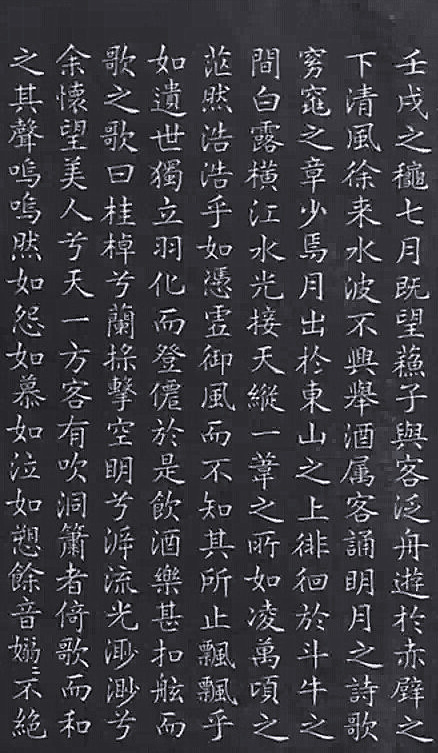 壬戌之穐七月既望蘓子與客泛舟遊扵赤壁之
下清風徐来水波不興舉酒属客誦明月之詩歌
窈窕之章少焉月出扵東山之上徘徊於斗牛之
間白露橫江水光接天縱一葦之所如凌萬頃之
茫然浩浩乎如憑虚御風而不知其所止飄飄乎
如遺世獨立羽化而登僊於是飲酒樂甚扣舷而
歌之歌曰桂棹兮蘭槳擊空明兮泝流光渺渺兮
余懷望美人兮天一方客有吹洞簫者倚歌而和
之其聲嗚嗚然如怨如慕如泣如愬餘音嫋〻不絕